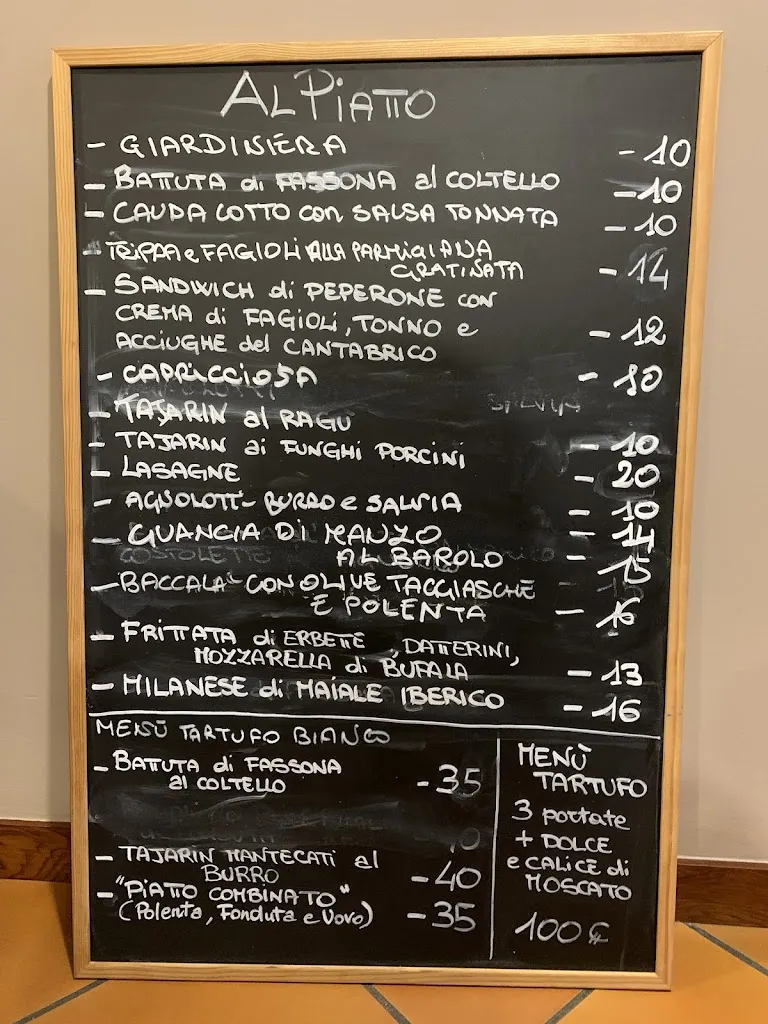 AL PIATTO
- GIARDINIERA - 10
- BATTUTA di FASSONA al COLTELLO - 10
- CAUDA COTTO con SALSA TONNATA - 10
- TRIPPA e FAGIOLI ALLA PARMIGIANA
GRATINATA - 14
- SANDWICH di PEPERONE CON
CREMA di FAGIOLI, TONNO e
ACCIUGHE del CANTABRICO - 12
- CAPRICCIOSA - 10
- TAJARIN al RAGÙ - 10
- TAJARIN ai FUNGHI PORCINI - 20
- LASAGNE - 10
- AGNOLOTTI BURRO e SALVIA - 14
- GUANCIA DI MANZO
AL BAROLO - 15
- BACCALA' CON OLIVE TAGGIASCHE
E POLENTA - 16
- FRITTATA di ERBETTE, DATTERINI,
MOZZARELLA di BUFALA - 13
- MILANESE di MAIALE IBERICO - 16
MENÙ TARTUFO BIANCO
- BATTUTA di FASSONA
al COLTELLO - 35
- TAJARIN MANTECATI al
BURRO - 40
- "PIATTO COMBINATO"
(Polenta, Fonduta e Uovo) - 35
MENÙ
TARTUFO
3 portate
+ DOLCE
e CALICE di
MOSCATO
100 €